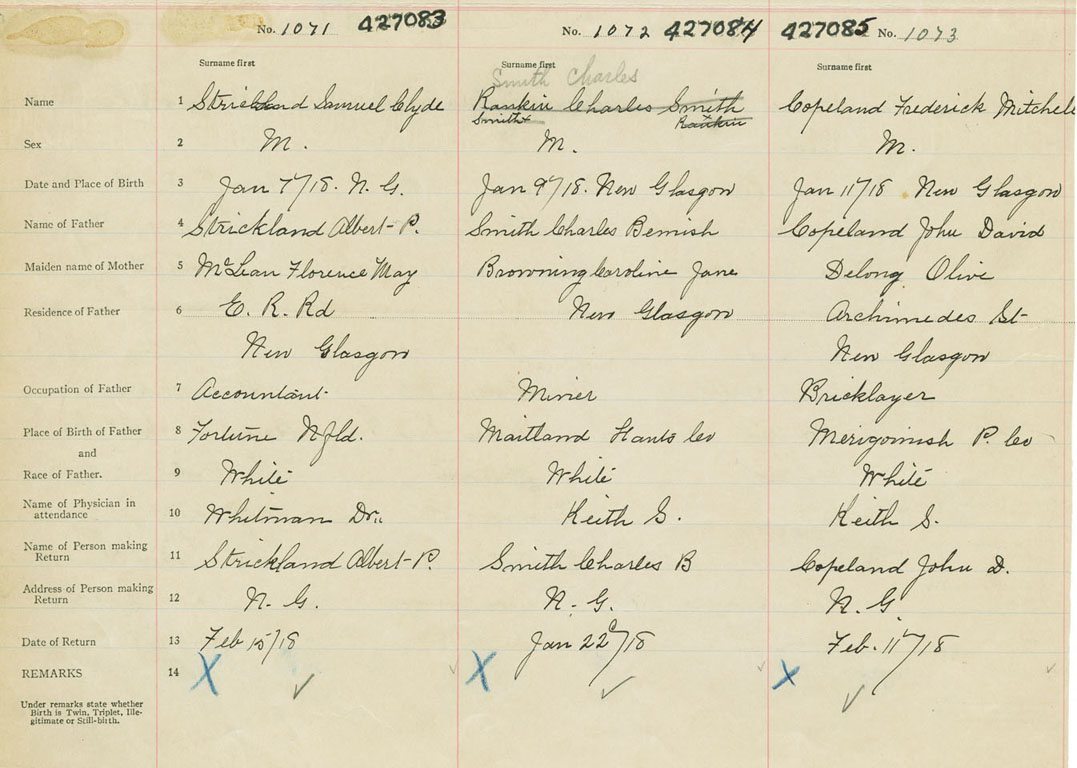 No. 1071 427083 No. 1072 427084 427085 No. 1073
Surname first Surname first Surname first
Smith Charles
Name 1 Strickland Samuel Clyde Rankin Charles Smith Copeland Frederick Mitchell
Smith Rankin
Sex 2 M. M. M.
Date and Place of Birth 3 Jan 7/18. N. G. Jan 9/18. New Glasgow Jan 11/18 New Glasgow
Name of Father 4 Strickland Albert P. Smith Charles Bemish Copeland John David
Maiden name of Mother 5 McLean Florence May Browning Caroline Jane Delong Olive
Residence of Father 6 E. R. Rd New Glasgow Archimedes St
New Glasgow New Glasgow
Occupation of Father 7 Accountant Miner Bricklayer
Place of Birth of Father 8 Fortune Nfld. Maitland Hants Co Merigomish P. Co
and
Race of Father. 9 White White White
Name of Physician in
attendance 10 Whitman Dr. Keith S. Keith S.
Name of Person making
Return 11 Strickland Albert P. Smith Charles B Copeland John D.
Address of Person making
Return 12 N. G. N. G. N. G
Date of Return 13 Feb 15/18 Jan 22/18 Feb. 11/18
REMARKS 14 X X X
Under remarks state whether
Birth is Twin, Triplet, Ille-
gitimate or Still-birth.